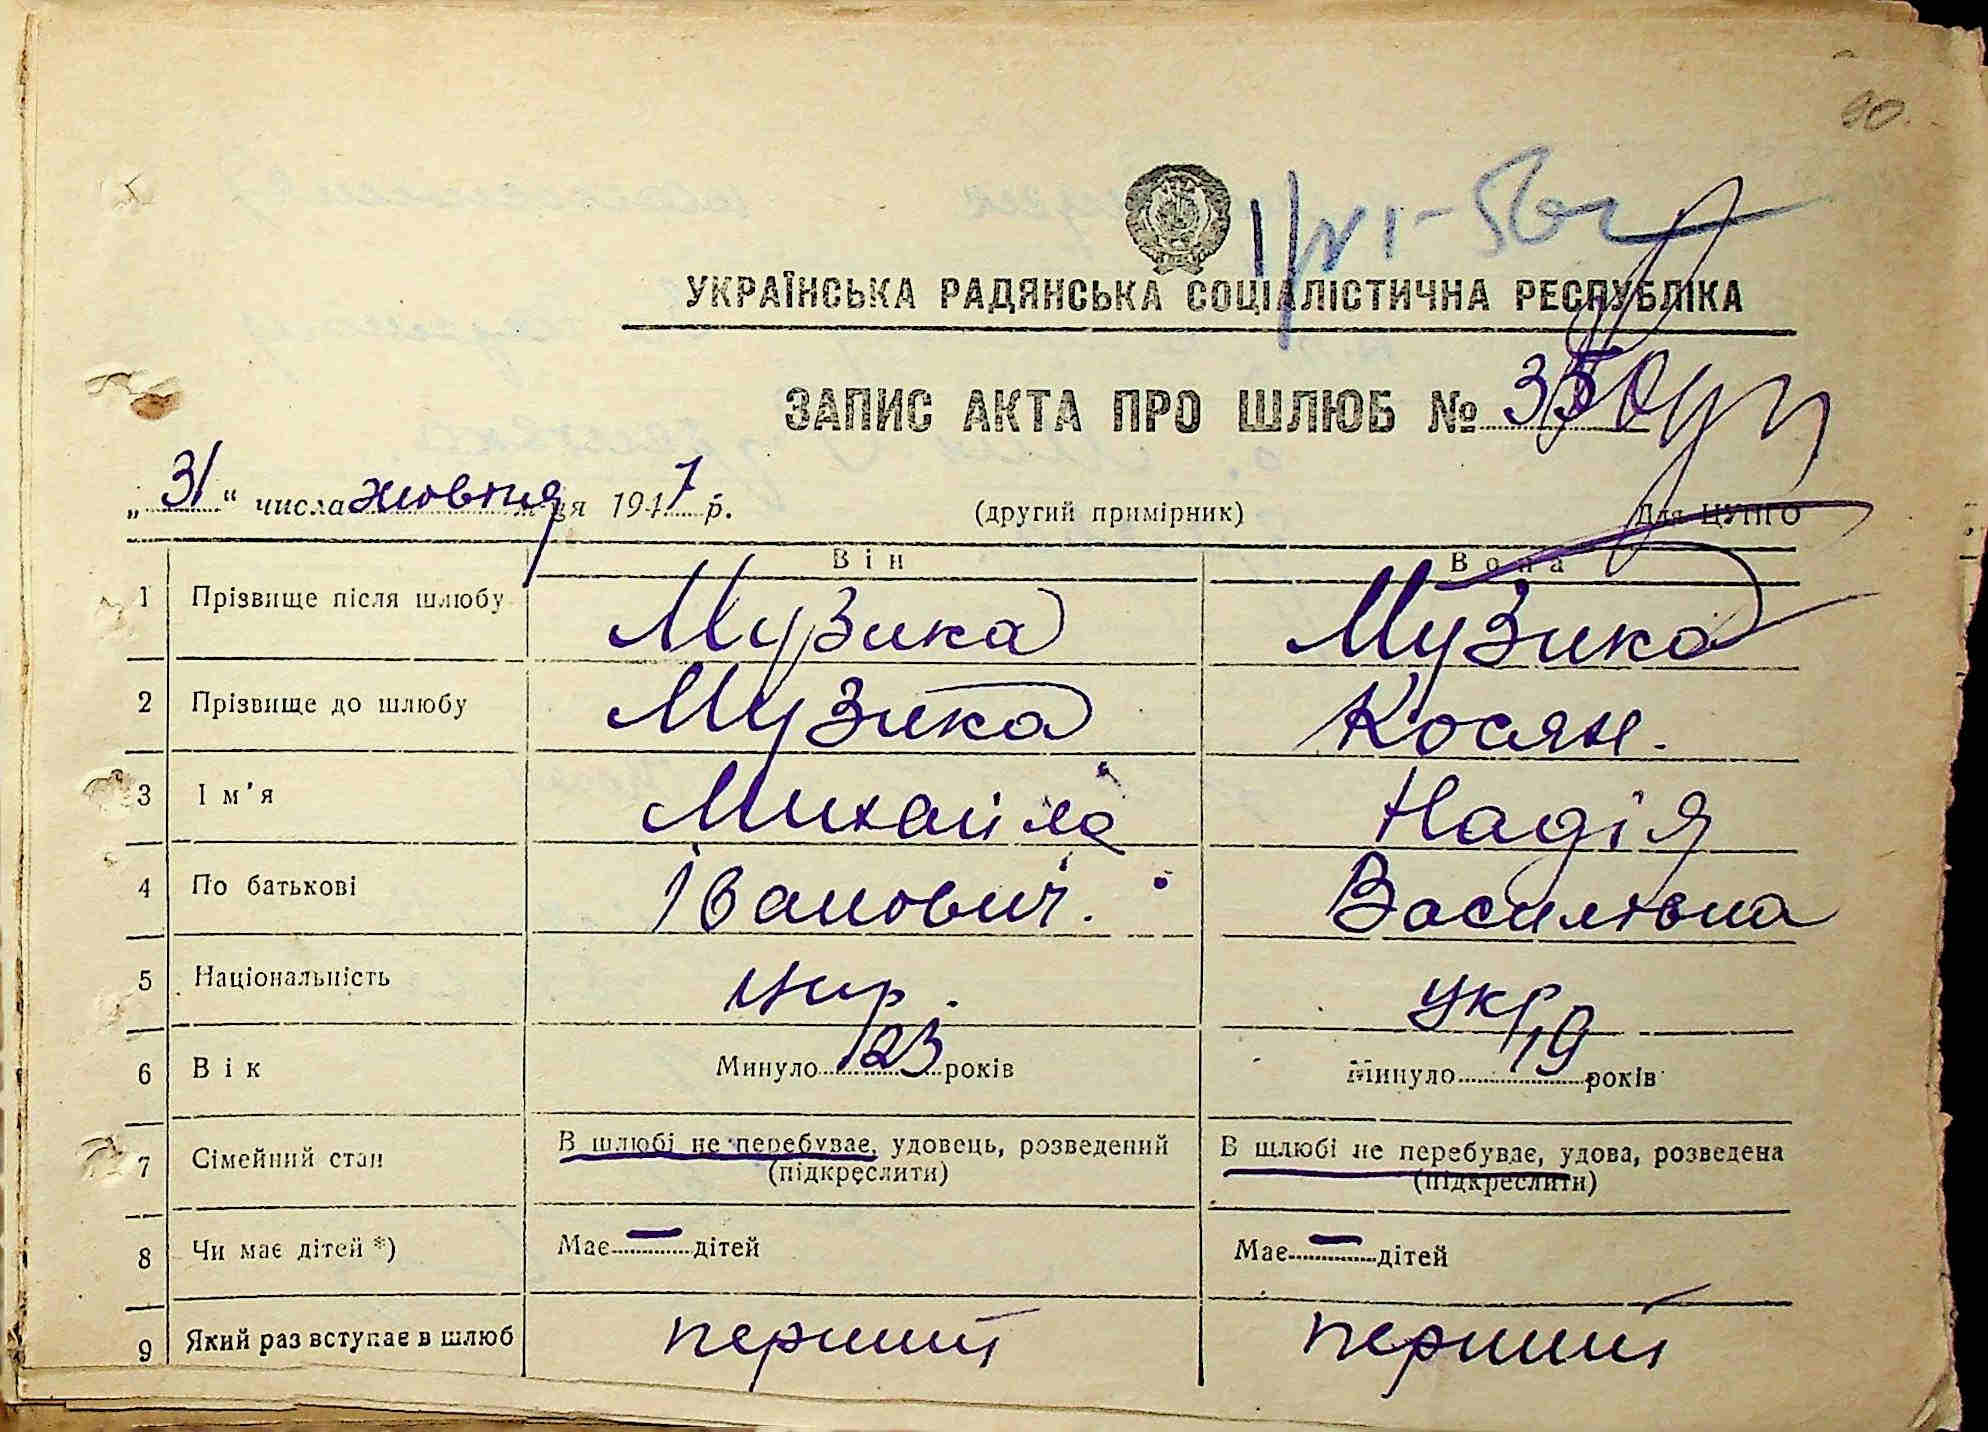 90.
УКРАЇНСЬКА РАДЯНСЬКА СОЦІАЛІСТИЧНА РЕСПУБЛІКА
ЗАПИС АКТА ПРО ШЛЮБ №
„31“ числа жовтня 1947 р. (другий примірник) Для ЦУНГО
Він Вона
1 Прізвище після шлюбу Музика Музика
2 Прізвище до шлюбу Музика Косян.
3 Ім'я Михайло Надія
4 По батькові Іванович. Василівна
5 Національність укр. укр.
6 Вік Минуло 23 років Минуло 19 років
7 Сімейний стан В шлюбі не перебуває, удовець, розведений В шлюбі не перебуває, удова, розведена
(підкреслити) (підкреслити)
8 Чи має дітей *) Має — дітей Має — дітей
9 Який раз вступає в шлюб перший перший